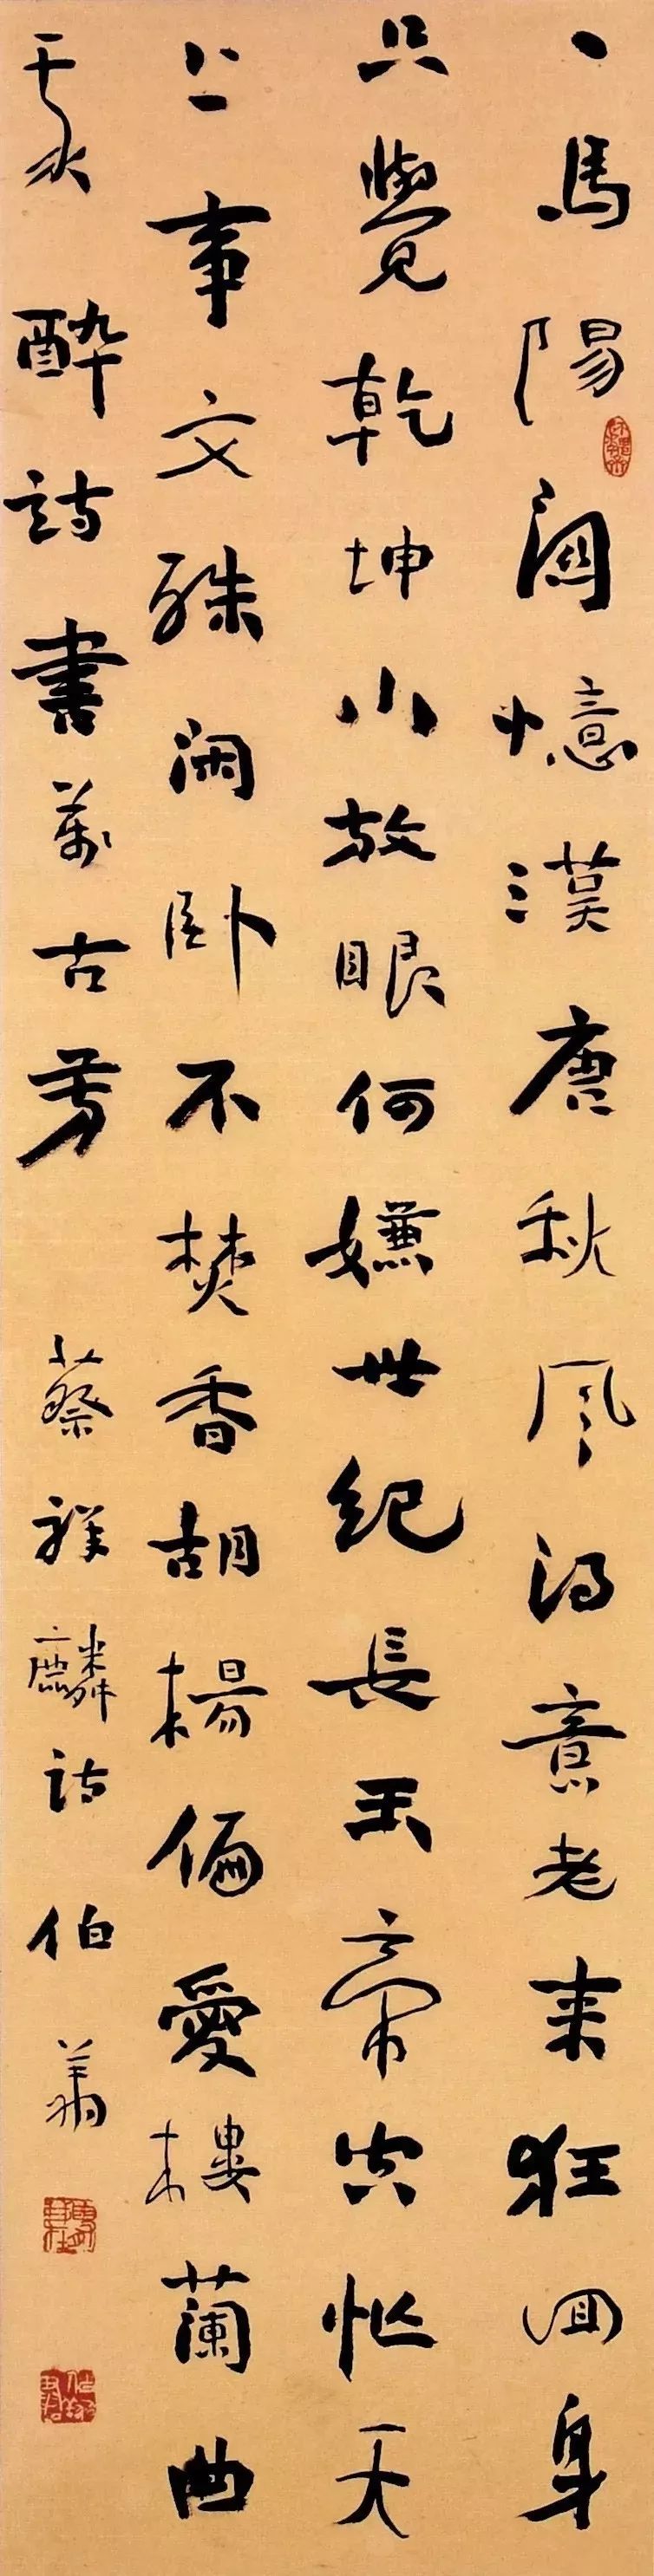 一馬陽関憶漢唐秋風得意老来狂回身
只覺乾坤小放眼何嫌世紀長玉帝空忙天
上事文殊闲卧不焚香胡楊偏愛樓蘭曲
醉詩書萬古芳 蔡祥麟詩 伯翔